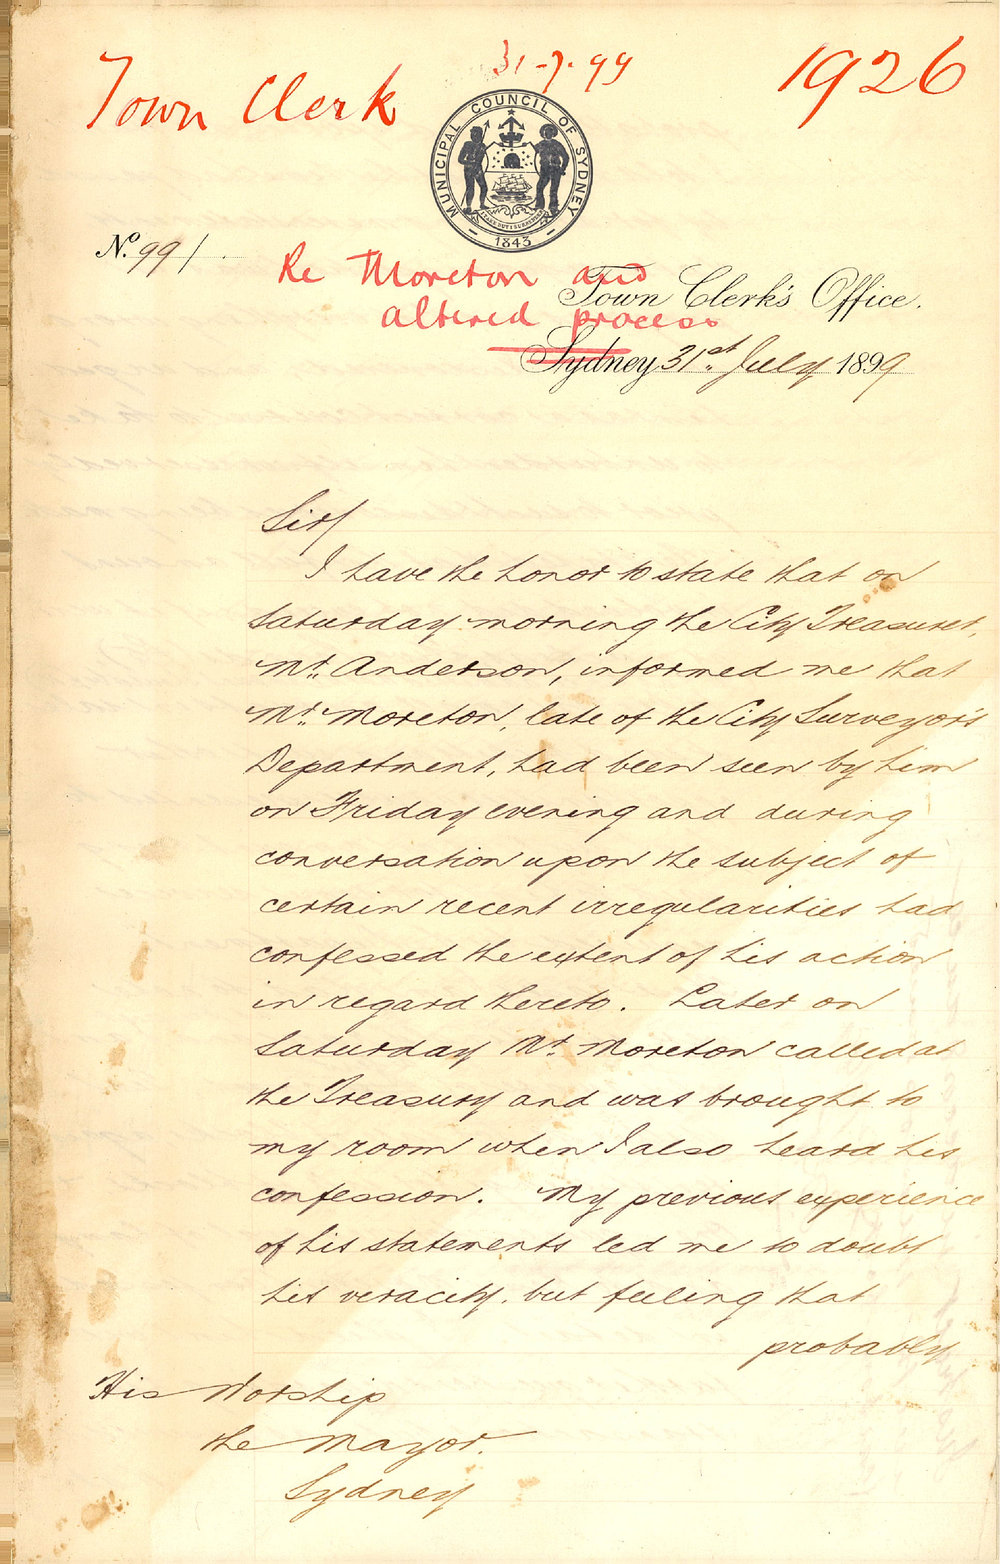 Town Clerk
31-7-99
1926
MUNICIPAL COUNCIL OF SYDNEY
1843
No. 991
Re Moreton and
altered process
Town Clerk's Office.
Sydney 31st July 1899
Sir/
I have the honor to state that on
Saturday morning the City Treasurer,
Mr. Anderson, informed me that
Mr. Moreton, late of the City Surveyor's
Department, had been seen by him
on Friday evening and during
conversation upon the subject of
certain recent irregularities had
confessed the extent of his action
in regard thereto. Later on
Saturday Mr. Moreton called at
the Treasury and was brought to
my room when I also heard his
confession. My previous experience
of his statements led me to doubt
his veracity, but feeling that
probably
His Worship
the Mayor.
Sydney